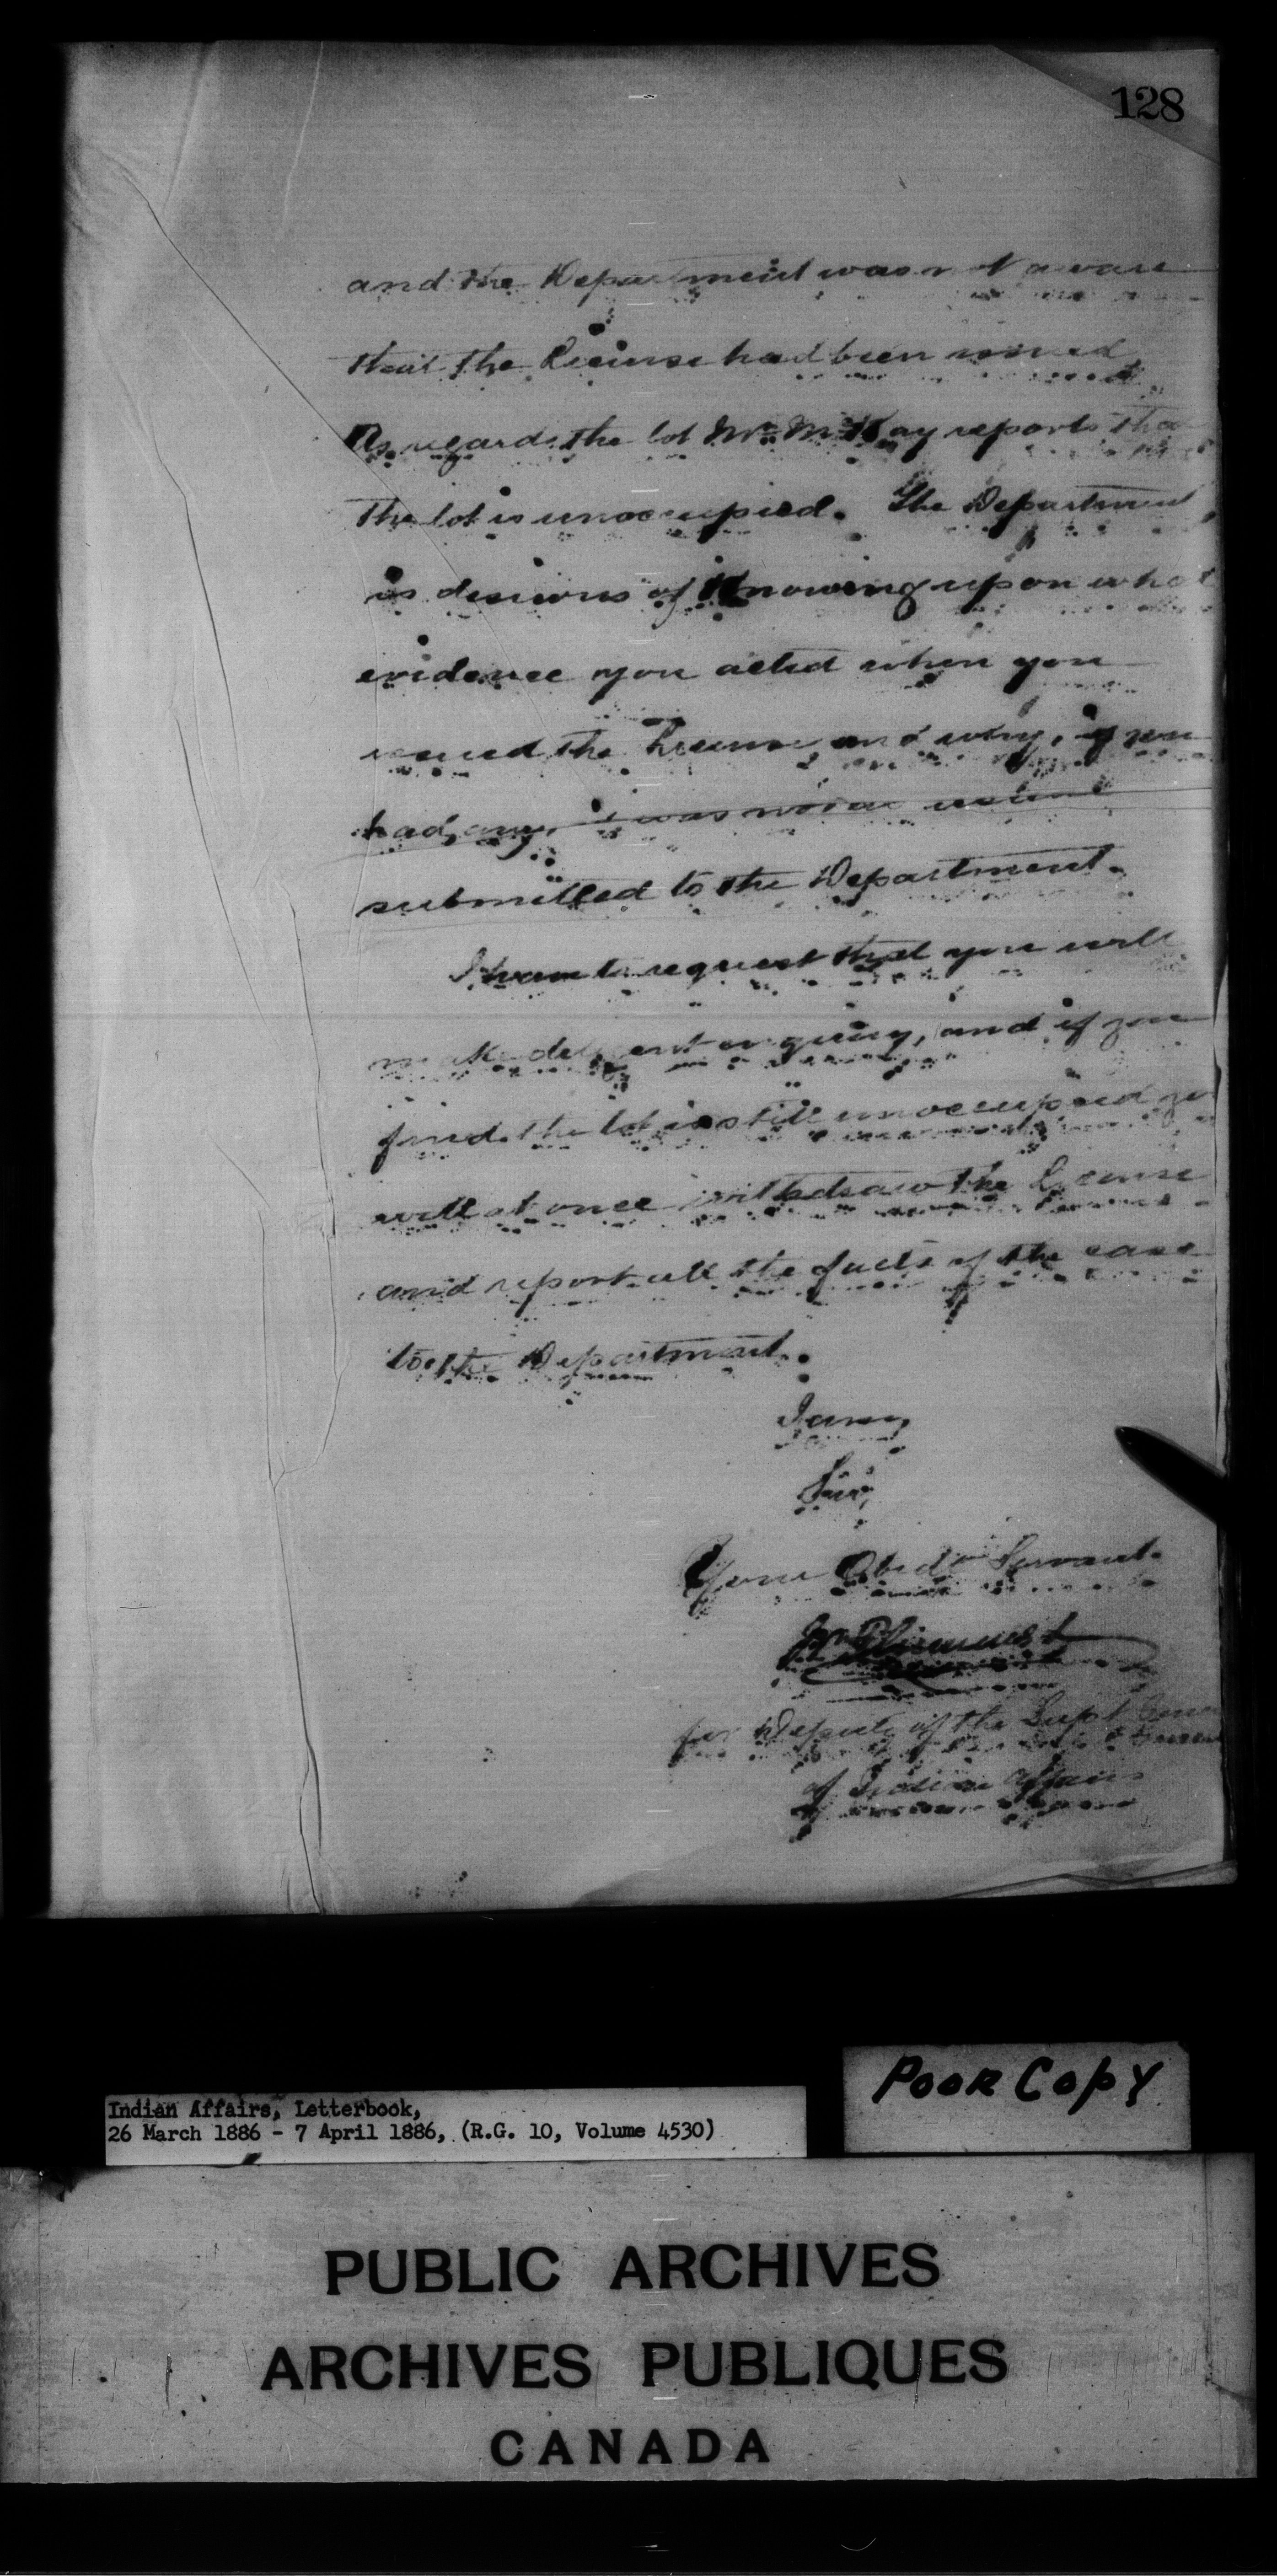 128
and the Department was not aware
that the License had been issued
As regards the lot Mr. McKay reports that
the lot is unoccupied. The Department
is desirous of Knowing upon what
evidence you acted when you
issued the License, and why, if you
had any, it was not
submitted to the Department.
I have to request that you will
make diligent enquiry, and if you
find the lot is still unoccupied you
will at once withdraw the License
and report all the facts of the case
to the Department.
I am,
Sir,
Your Obedt Servant.
for Deputy of the Supt General
of Indian Affairs
Poor Copy
Indian Affairs, Letterbook,
26 March 1886 - 7 April 1886, (R.G. 10, Volume 4530)
PUBLIC ARCHIVES
ARCHIVES PUBLIQUES
CANADA